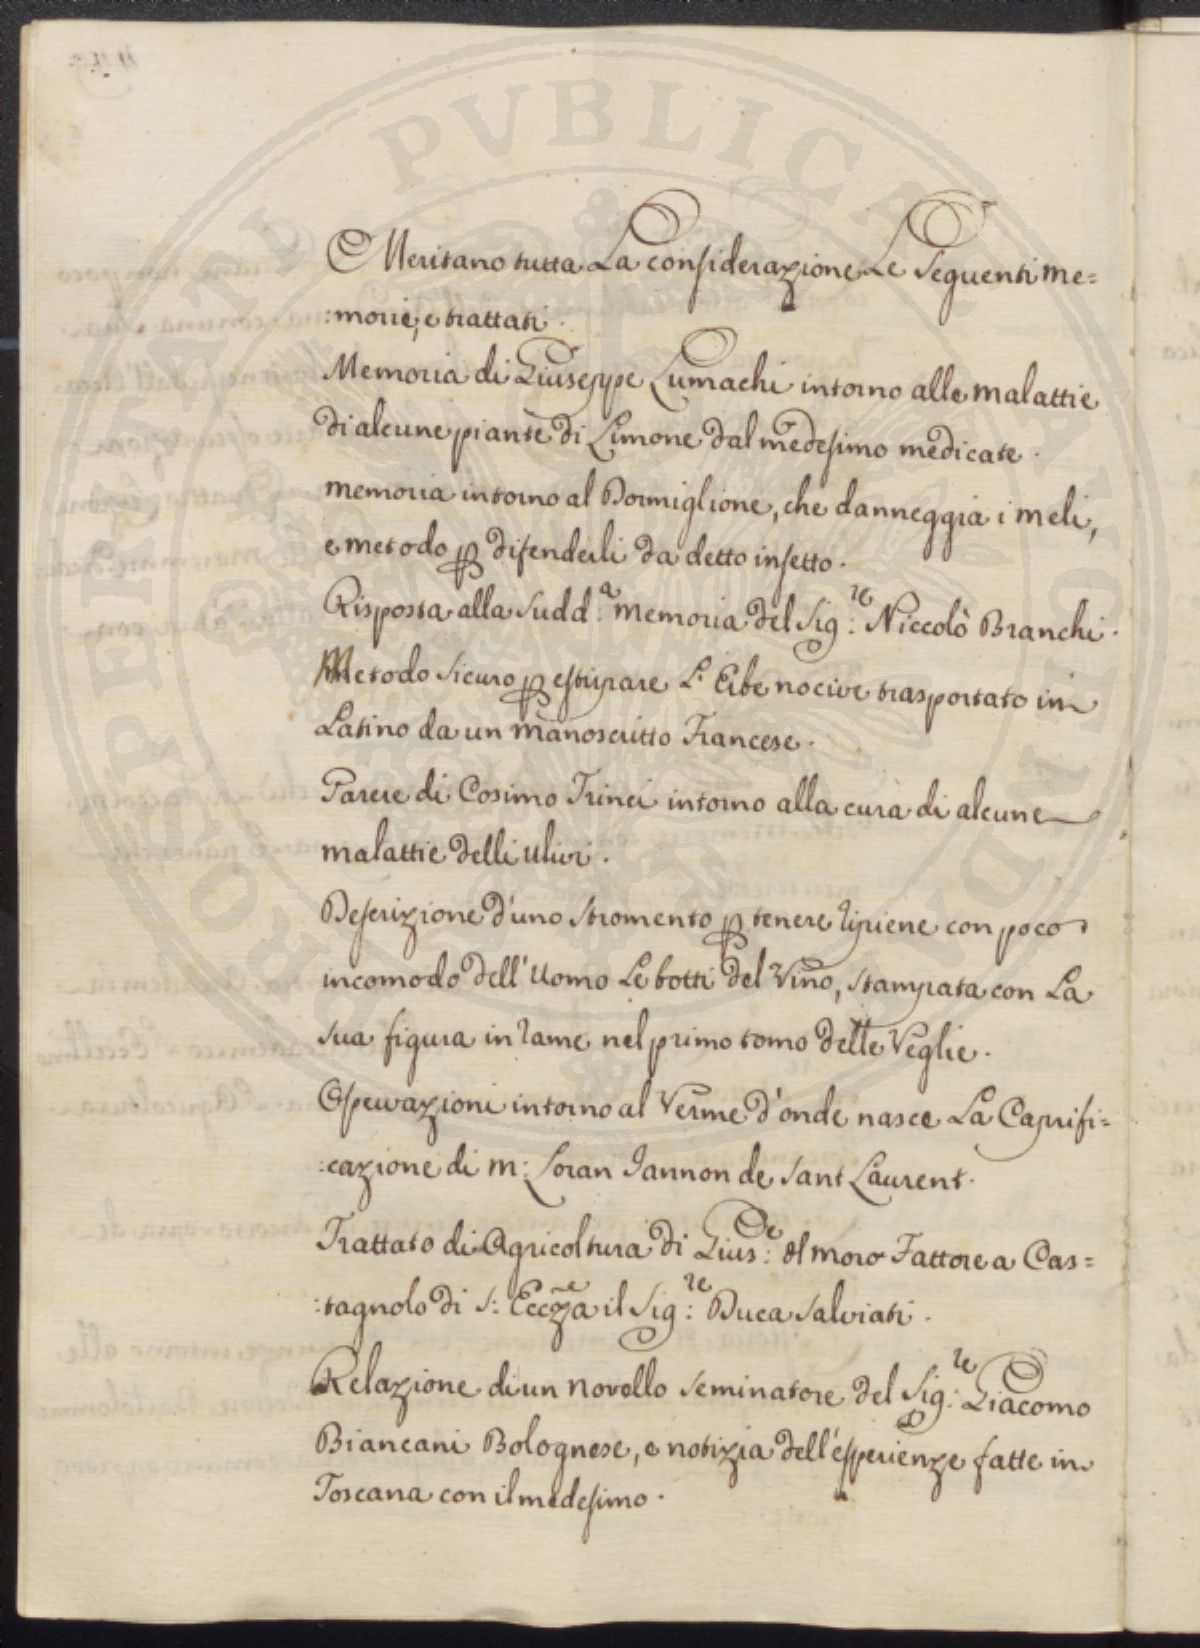 Meritano tutta La considerazione Le seguenti me=
:morie, e trattati.
Memoria di Giuseppe Lumachi intorno alle malattie
di alcune piante di Limone dal medesimo medicate.
memoria intorno al Dormiglione, che danneggia i meli,
e metodo p difenderli da detto insetto.
Risposta alla sudd:a memoria del Sig:re Niccolò Branchi.
Metodo sicuro p estirpare L'Erbe nocive trasportato in
Latino da un manoscritto Francese.
Parere di Cosimo Trinci intorno alla cura di alcune
malattie delli ulivi.
Descrizione d'uno stromento p tenere ripiene con poco
incomodo dell'uomo Le botti del Vino, stampata con La
sua figura in rame nel primo tomo delle Veglie.
Osservazioni intorno al Verme d'onde nasce La Caprifi=
:cazione di m: Loran Jannon de sant Laurent.
Trattato di Agricoltura di Gius:e del moro Fattore a Cas=
:tagnolo di S: Eccza il Sig:re Duca Salviati.
Relazione di un novello seminatore del Sig:re Giacomo
Biancani Bolognese, e notizia dell'esperienze fatte in
Toscana con il medesimo.